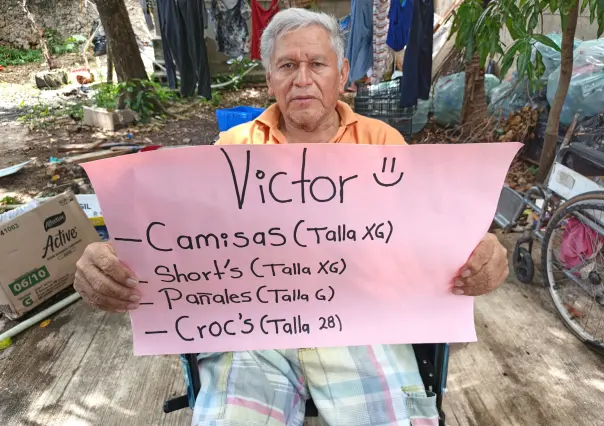 Victor =)
— Camisas (Talla XG)
— Short's (Talla XG)
— Pañales (Talla G)
— Croc's (Talla 28)
41063
Active
06/10
G